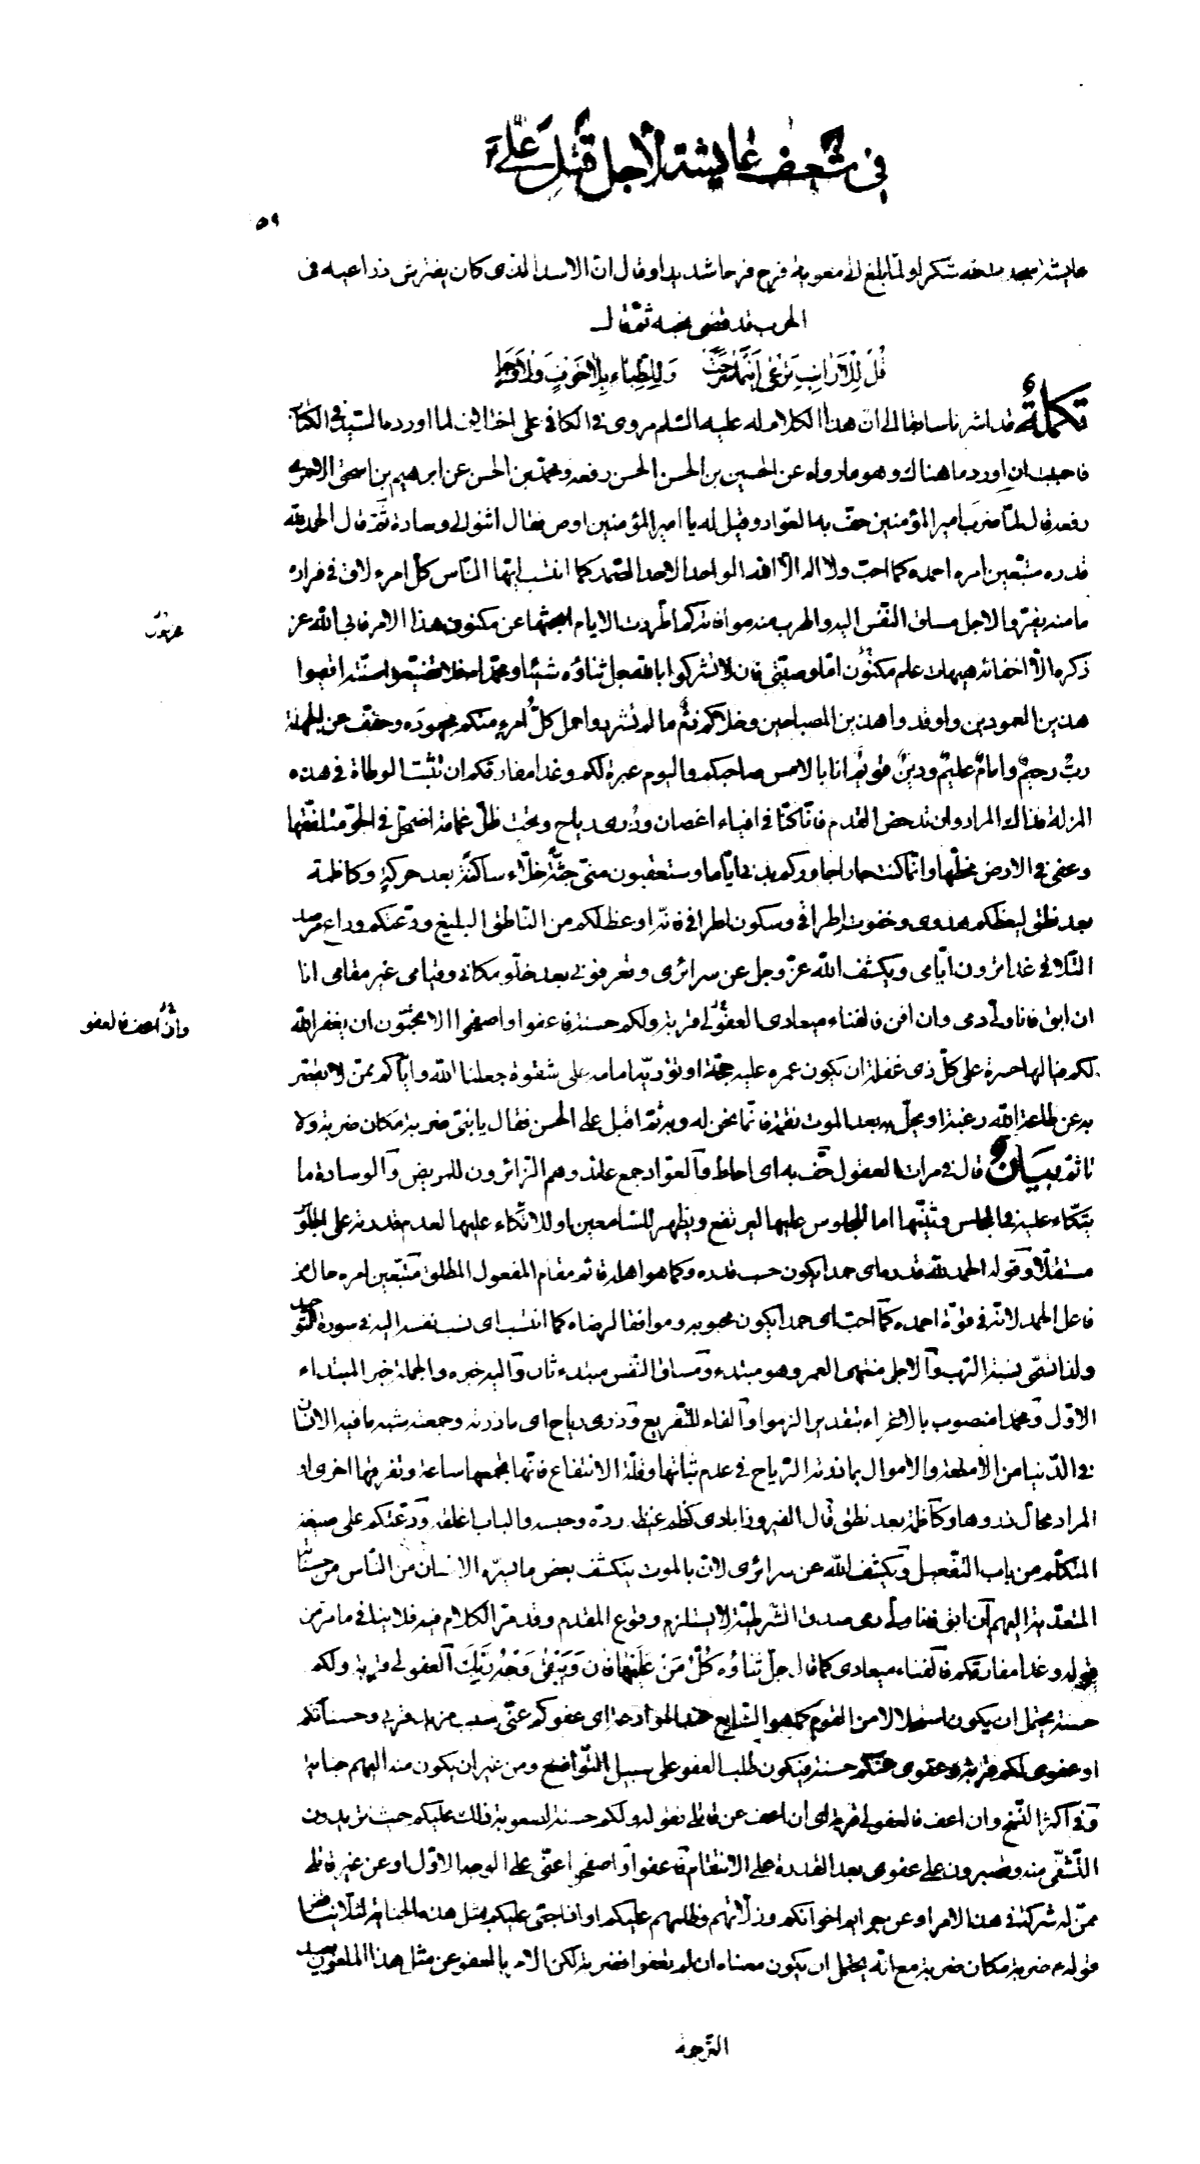 في شعف عايشة لأجل قتل علي ع
٥٩
عايشة سجدت شكرا ولما بلغ الى معوية فرح فرحا شديدا وقال ان الاسد الذى كان يفترش ذراعيه فى
الحرب قد قضى نحبه ثم قال
قُلْ لِلْأَرَانِبِ تَرْعَى أَيْنَمَا سَرَحَتْ وَلِلظِّبَاءِ بِلَا خَوْفٍ وَلَا وَجَلٍ
تكملة قد اشرنا سابقا الى ان هذا الكلام له عليه السّلم مروى فى الكافى على اختلاف لما اورده السّيد فى الكتاب
فاحببت ان اورد ما هناك وهو ما رواه عن الحسين بن الحسن الحسنى رفعه ومحمّد بن الحسن عن ابرهيم بن اسحق الاحمرى
رفعه قال لمّا ضرب امير المؤمنين حفّ به العوّاد وقيل له يا امير المؤمنين اوص فقال اثنوا لى وسادة ثمّ قال الحمد للّه
قدره متّبعين امره احمده كما احبّ ولا اله الاّ اللّه الواحد الاحد الصّمد كما انتسب ايّها النّاس كلّ امرء لاق فى فراره
ما منه يفرّ والاجل مساق النّفس اليه والهرب منه موافاته كم اطردت الايام ابحثها عن مكنون هذا الامر فابى اللّه عزّ
ذكره الاّ اخفائه هيهات علم مكنون امّا وصيّتى فان لا تشركوا باللّه جلّ ثناؤه شيئا ومحمّدا فلا تضيّعوا سنّته اقيموا
هذين العمودين واوقدوا هذين المصباحين وخلاكم ذمّ ما لم تشردوا حمل كلّ امرءٍ منكم مجهوده وخفّف عن الجهلة
ربّ رحيمٌ وامامٌ عليمٌ ودينٌ قويمٌ انا بالامس صاحبكم واليوم عبرة لكم وغدا مفارقكم ان تثبت الوطاة فى هذه
المزلة فذاك المراد وان تدحض القدم فانّا كنّا فى افياء اغصان وذرى رياح وتحت ظلّ غمامة اضمحلّ فى الجوّ متلفّقها
وعفى فى الارض مخطّها وانّما كنت جارا جاوركم بدنى ايّاما وستعقبون منّى جثّةً خلاء ساكنة بعد حركةٍ وكاظمة
بعد نطق ليعظكم هدوى وخفوت اطراقى وسكون اطرافى فانّه اوعظ لكم من النّاطق البليغ ودّعتكم وداع مرصد
التّلاقى غدا ترون ايّامى ويكشف اللّه عزّ وجل عن سرائرى وتعرفونى بعد خلوّ مكانى وقيامى غير مقامى انا
ان ابق فانا ولىّ دمى وان افن فالفناء ميعادى العفو لى قربة ولكم حسنة فاعفوا واصفحوا الا تحبّون ان يغفر اللّه
لكم فيا لها حسرة على كلّ ذى غفلة ان يكون عمره عليه حجّة او تؤدّيه ايامه على شقوة جعلنا اللّه وايّاكم ممّن لا يقصر
به عن طاعة اللّه رغبة او تحلّ به بعد الموت نقمة فانّما نحن له وبه ثمّ اقبل على الحسن فقال يا بنىّ ضربة مكان ضربة ولا
تاثم بيان قال فى مرات العقول حفّ به اى احاط والعوّاد جمع عائد وهم الزّائرون للمريض والوسادة ما
يتّكاء عليه فى المجلس وتثنيتها اما للجلوس عليها ليرتفع ويظهر للسّامعين او للاتّكاء عليها لعدم قدرته على الجلوس
مستقلّا وقوله الحمد للّه قدره اى حمدا يكون حسب قدره وكما هو اهله قائم مقام المفعول المطلق متّبعين امره حال من
فاعل الحمد لانّه فى قوّة احمده كما احبّ اى حمدا يكون محبوبه وموافقا لرضاه كما انتسب اى نسب نفسه اليه فى سورة التّوحيد
ولذا تسمّى نسبة الرّب والاجل منتهى العمر وهو مبتدء ومساق النّفس مبتدء ثان واليه خبره والجملة خبر المبتداء
الاوّل ومحمدا منصوب بالاغراء بتقدير الزموا والفاء للتّفريع وذرى رياح اى ما ذرته وجمعته شبه ما فيه الانسان
فى الدّنيا من الامتعة والاموال بما ذرته الرّياح فى عدم ثباتها وقلّة الانتفاع فانّها تجمعها ساعة وتفرقها اخرى او
المراد محالّ ذروها وكاظمة بعد نطق قال الفيروزابادى كظم غيظه ردّه وحبسه والباب اغلقه وودّعتكم على صيغة
المتكلّم من باب التّفعيل ويكشف اللّه عن سرائرى لانّ بالموت ينكشف بعض ما يسرّه الانسان من النّاس من حسناته
المتعدّية اليهم ان ابق فانا ولى دمى صدق الشّرطيّة لا يستلزم وقوع المقدم وقد مرّ الكلام فيه فلا ينافى ما مرّ من
قوله وغدا مفارقكم فالفناء ميعادى كما قال جلّ ثناؤه كُلُّ مَنْ عَلَيْهَا فَانٍ وَيَبْقَىٰ وَجْهُ رَبِّكَ العفو لى قربة ولكم
حسنة يحتمل ان يكون استحلالا من القوم كما هو الشّايع عند الموادعة اى عفوكم عنّى سبب مزيد قربى وحسناتكم
او عفوى لكم قربة وعفوى عنكم حسنة فيكون طلب العفو على سبيل التّواضع ومن غير ان يكون منه اليهم جناية
وفى اكثر النّسخ وان اعف فالعفو لى قربة اى ان اعف عن قاتلى بقوله ولكم حسنة لصعوبة ذلك عليكم حيث تريدون
التّشفّى منه وتصبرون على عفوى بعد القدرة على الانتقام فاعفوا واصفحوا عنّى على الوجه الاوّل او عن غير قاتلى
ممّن له شركة فى هذا الامر او عن جرايم اخوانكم وزلّاتهم وظلمهم عليكم او اذا جنى عليكم بمثل هذه الجناية لئلّا يناقض
قوله ضربة مكان ضربة مع انّه يحتمل ان يكون معناه ان لم تعفوا فضربة لكن الامر بالعفو عن مثل هذا الملعون بعيد
وان اعف فالعفو
التّرجمة